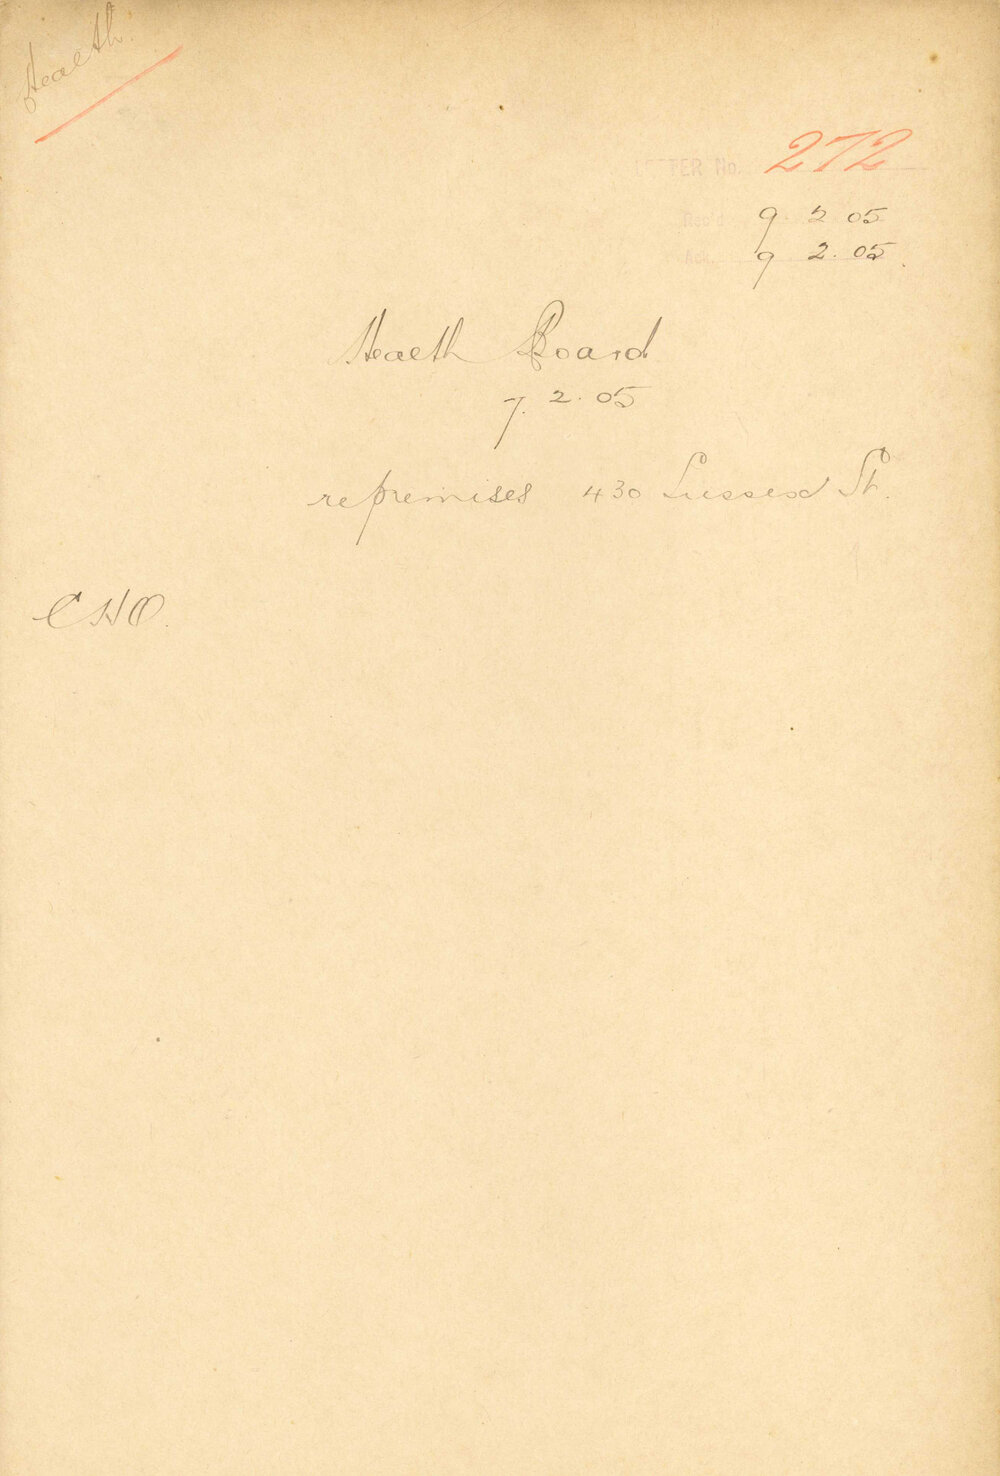 Health.
LETTER No. 272
Rec'd 9. 2 05
Ack. 9 2. 05.
Health Board
7. 2. 05
re premises 430 Sussex St.
CHO.